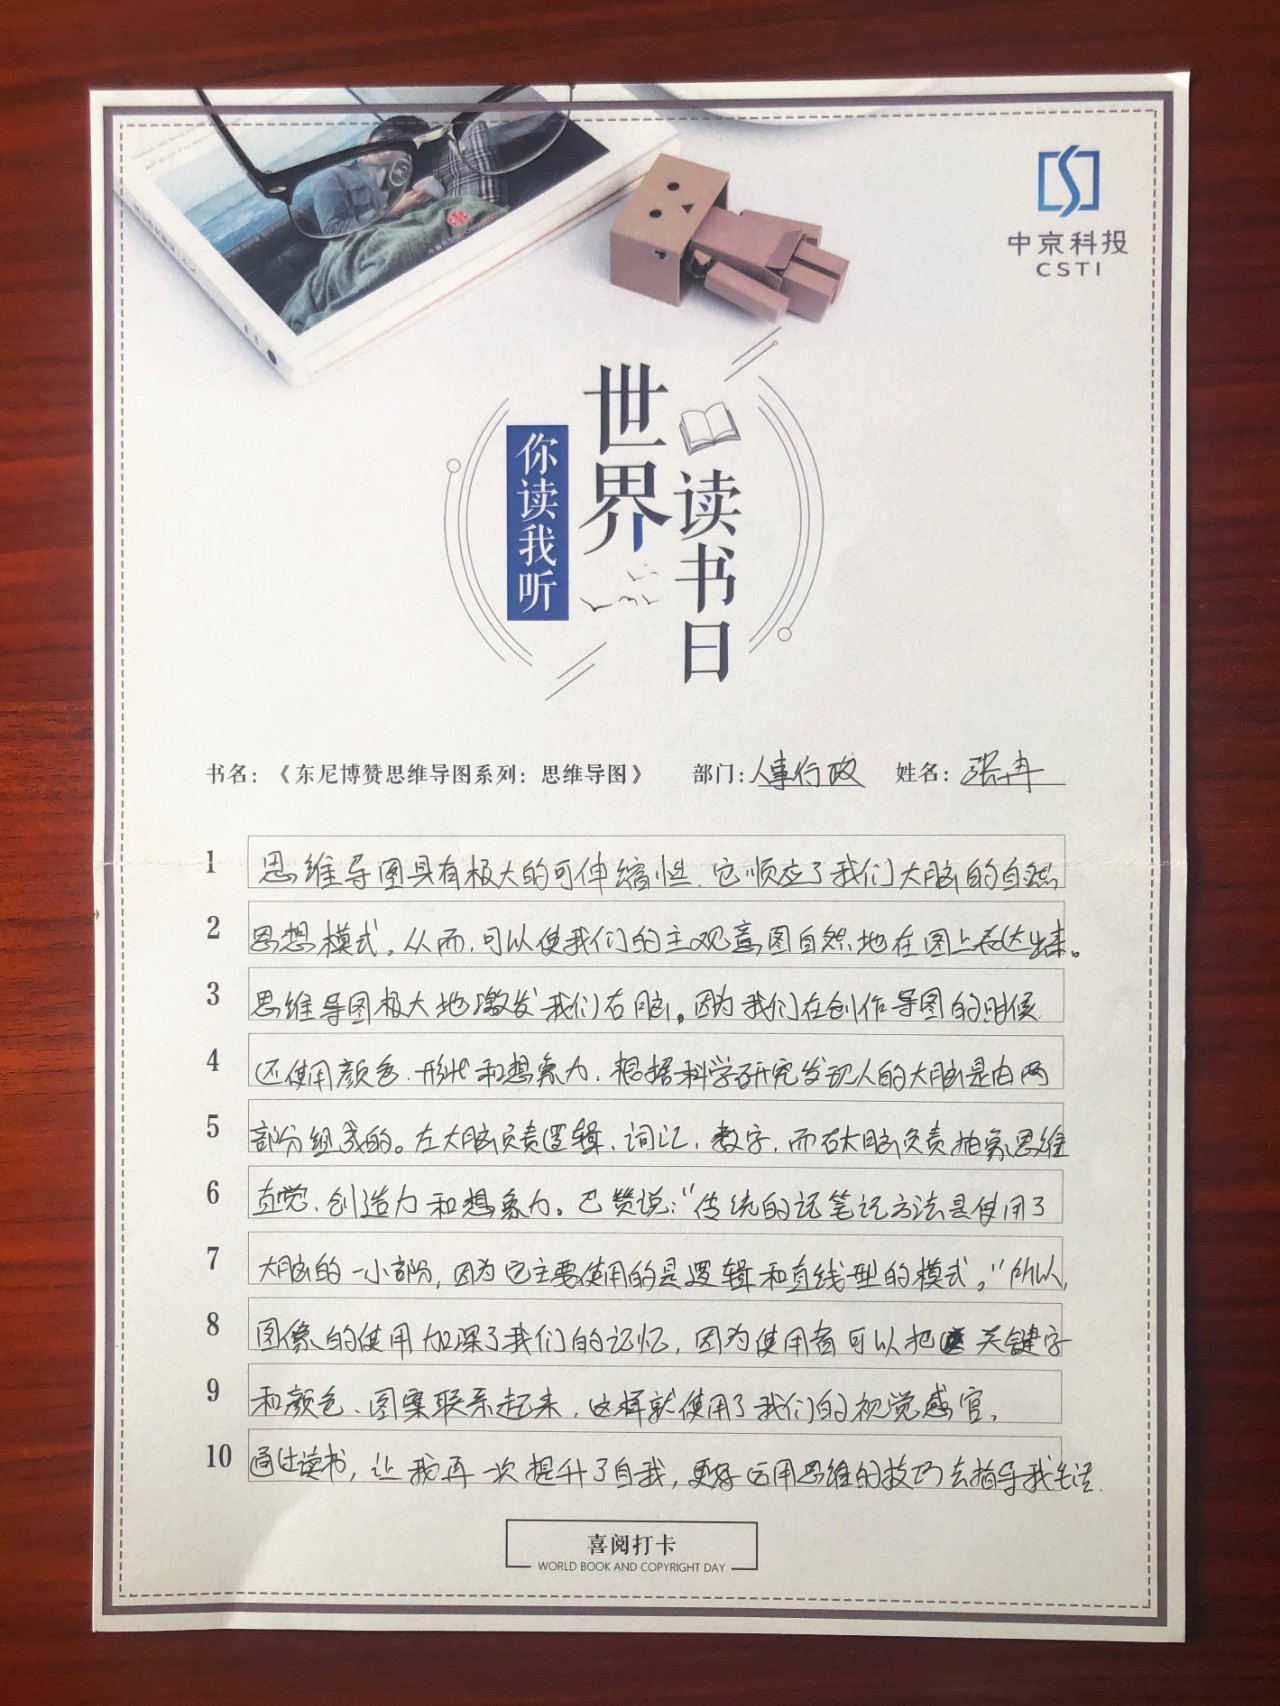 中京科投
CSTI
世界
读书日
你读我听
书名：《东尼博赞思维导图系列：思维导图》 部门：人事行政 姓名：张冉
1 思维导图具有极大的可伸缩性，它顺应了我们大脑的自然
2 思想模式。从而，可以使我们的主观意图自然地在图上表达出来。
3 思维导图极大地激发我们右脑。因为我们在创作导图的时候
4 还使用颜色、形状和想象力，根据科学研究发现人的大脑是由两
5 部分组成的。左大脑负责逻辑、词汇、数字，而右大脑负责抽象思维
6 直觉、创造力和想象力。巴赞说：“传统的记笔记方法是使用了
7 大脑的一小部分，因为它主要使用的是逻辑和直线型的模式。”所以，
8 图像的使用加深了我们的记忆，因为使用者可以把关键字
9 和颜色、图案联系起来，这样就使用了我们的视觉感官。
10 通过读书，让我再一次提升了自我，更好运用思维的技巧去指导我生活.
喜阅打卡
WORLD BOOK AND COPYRIGHT DAY